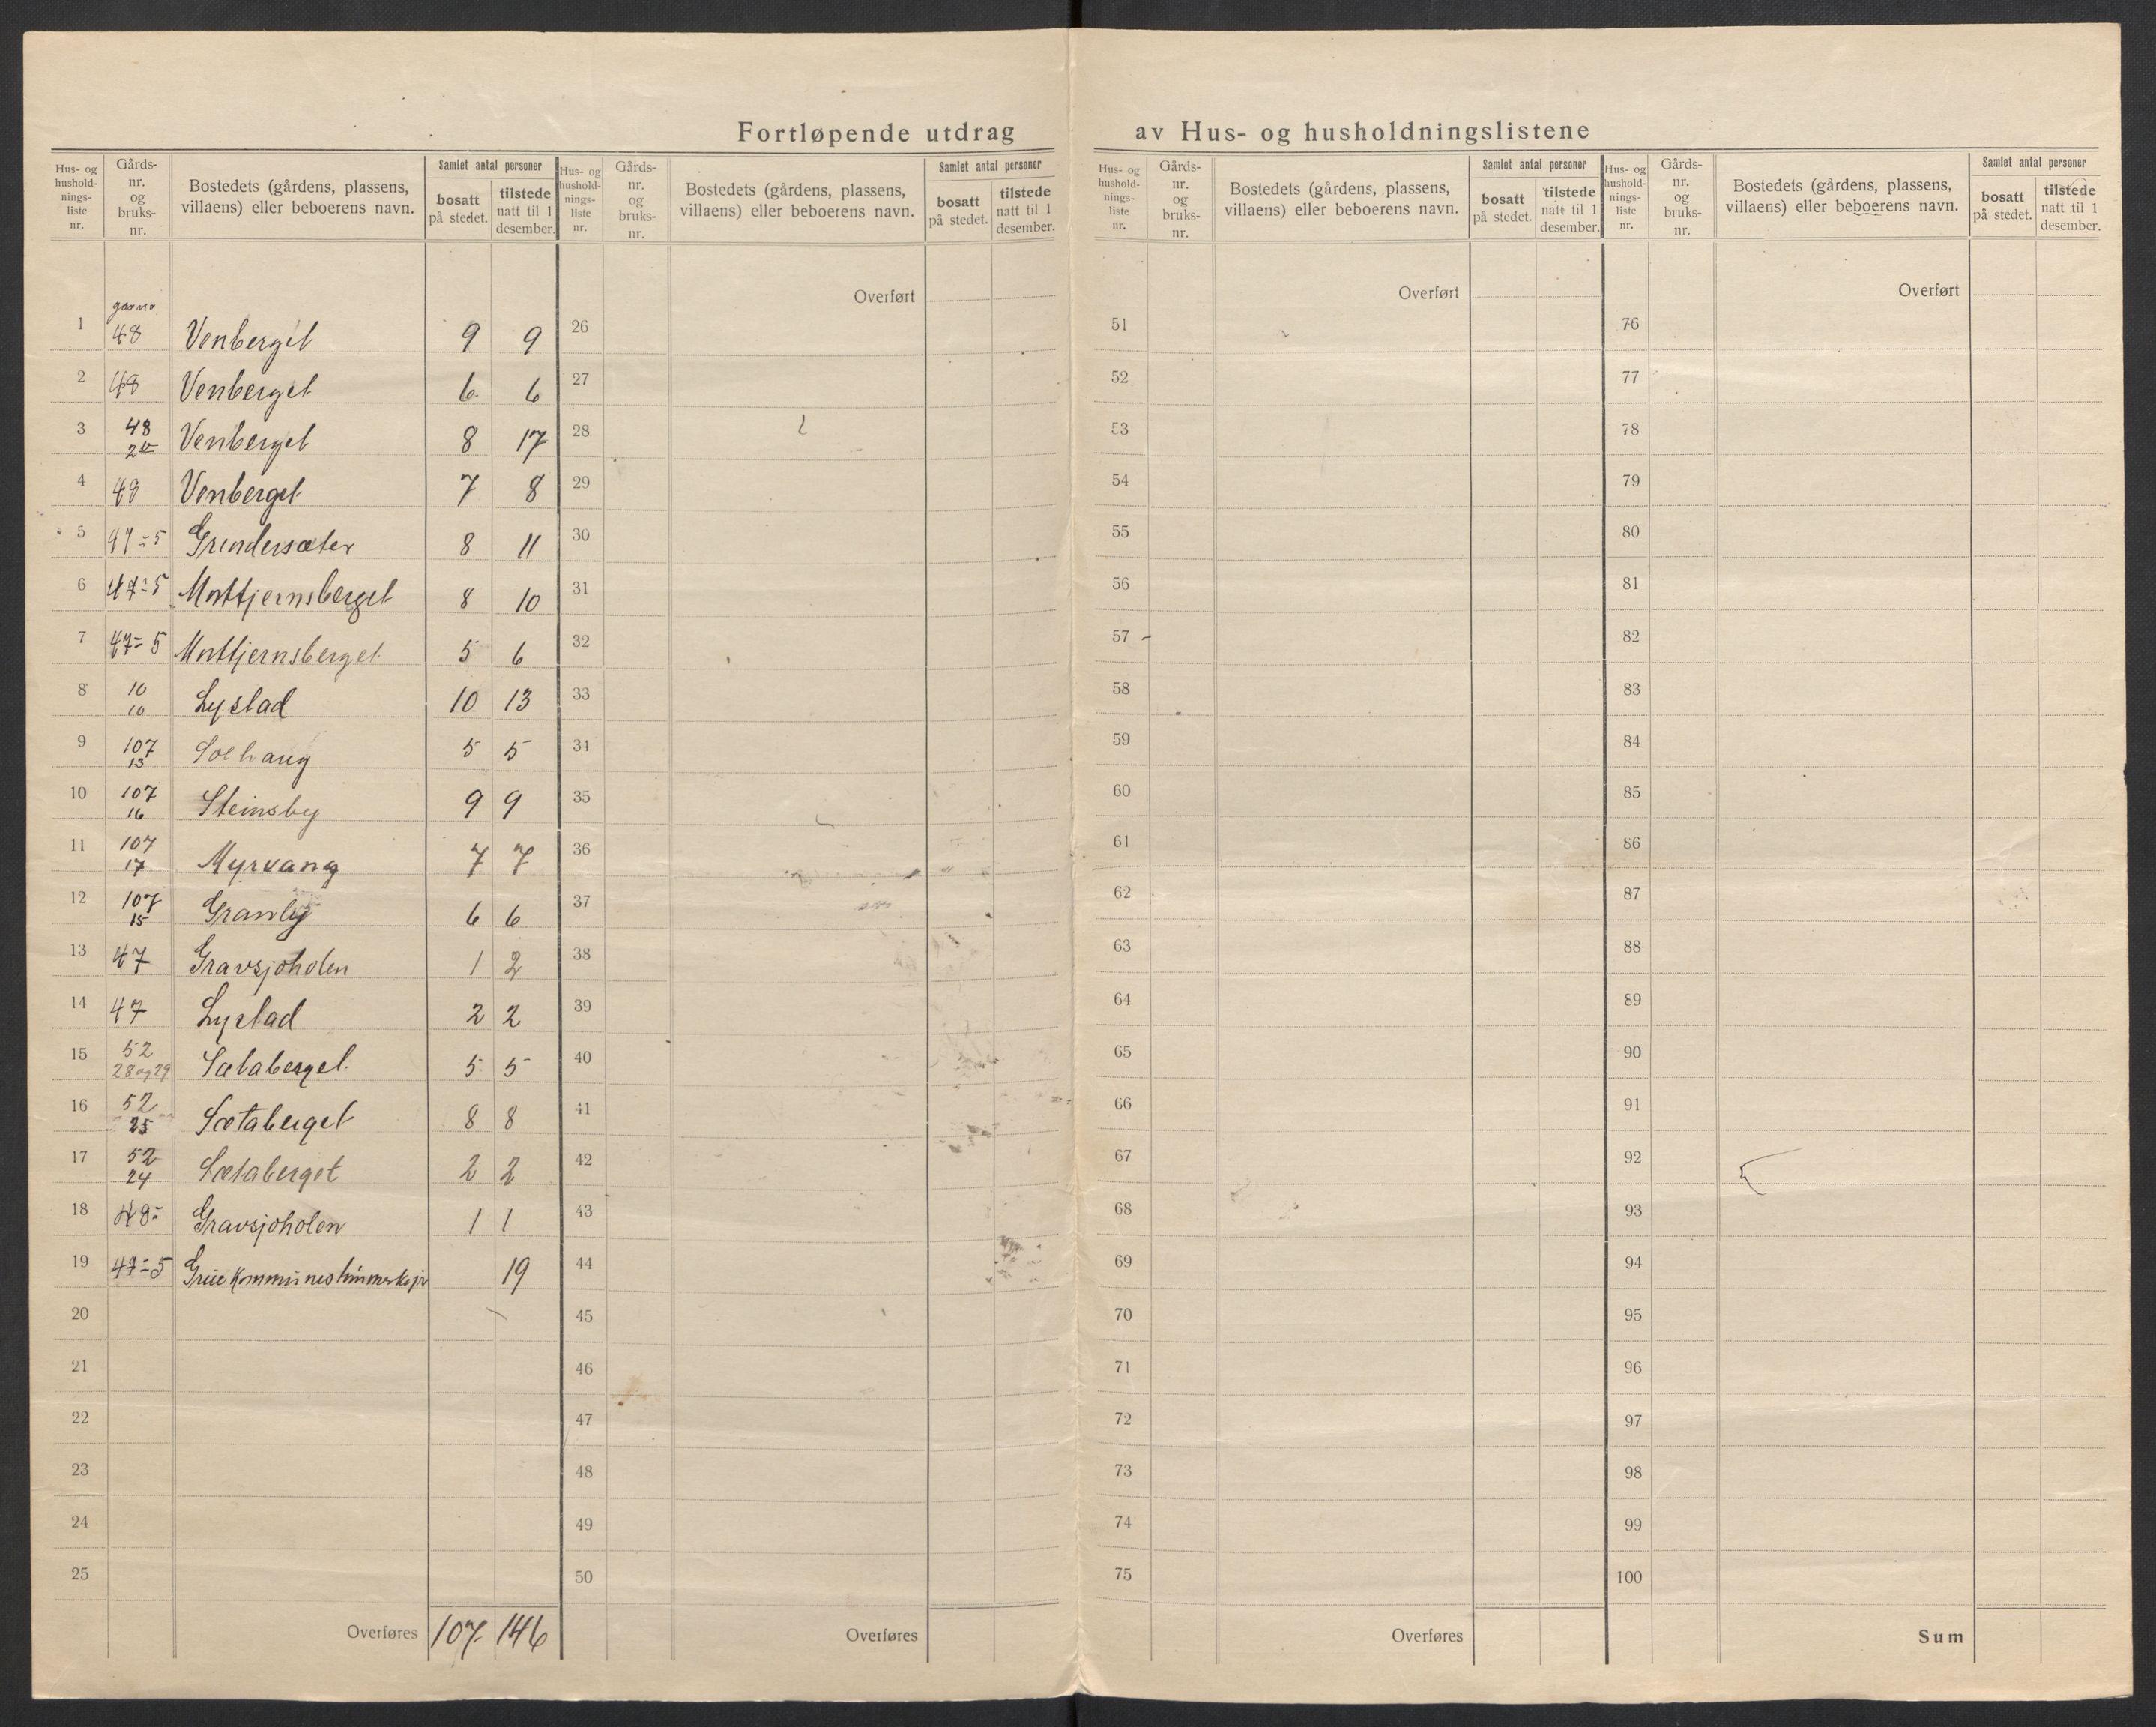 Fortløpende utdrag av Hus- og husholdningslistene
Hus- og hushold-nings-liste nr. Gårds-nr. og bruks-nr. Bostedets (gårdens, plassens, villaens) eller beboerens navn. Samlet antal personer bosatt på stedet. tilstede natt til 1 desember.
Hus- og hushold-nings-liste nr. Gårds-nr. og bruks-nr. Bostedets (gårdens, plassens, villaens) eller beboerens navn. Samlet antal personer bosatt på stedet. tilstede natt til 1 desember.
Hus- og hushold-nings-liste nr. Gårds-nr. og bruks-nr. Bostedets (gårdens, plassens, villaens) eller beboerens navn. Samlet antal personer bosatt på stedet. tilstede natt til 1 desember.
Hus- og hushold-nings-liste nr. Gårds-nr. og bruks-nr. Bostedets (gårdens, plassens, villaens) eller beboerens navn. Samlet antal personer bosatt på stedet. tilstede natt til 1 desember.
1 48 Venberget 9 9
2 48 Venberget 6 6
3 48 Venberget 8 17
4 Venberget 7 8
5 47-5 Grindersæter 8 11
6 47-5 Mottjernsberget 8 10
7 47-5 Mottjernsberget 5 6
8 10 10 Lystad 10 13
9 107 13 Solhaug 5 5
10 107 16 Steinsby 9 9
11 107 17 Myrvang 7 7
12 107 15 Granly 6 6
13 47 Gravsjøholen 1 2
14 47 Lystad 2 2
15 52 28 og 29 Sætaberget 5 5
16 52 25 Sætaberget 8 8
17 52 24 Sætaberget 2 2
18 48- Gravsjøholen 1 1
19 47-5 Grue Kommunes 19
20
21
22
23
24
25
Overføres 107 146
Overført
26
27
28
29
30
31
32
33
34
35
36
37
38
39
40
41
42
43
44
45
46
47
48
49
50
Overføres
Overført
51
52
53
54
55
56
57
58
59
60
61
62
63
64
65
66
67
68
69
70
71
72
73
74
75
Overføres
Overført
76
77
78
79
80
81
82
83
84
85
86
87
88
89
90
91
92
93
94
95
96
97
98
99
100
Sum